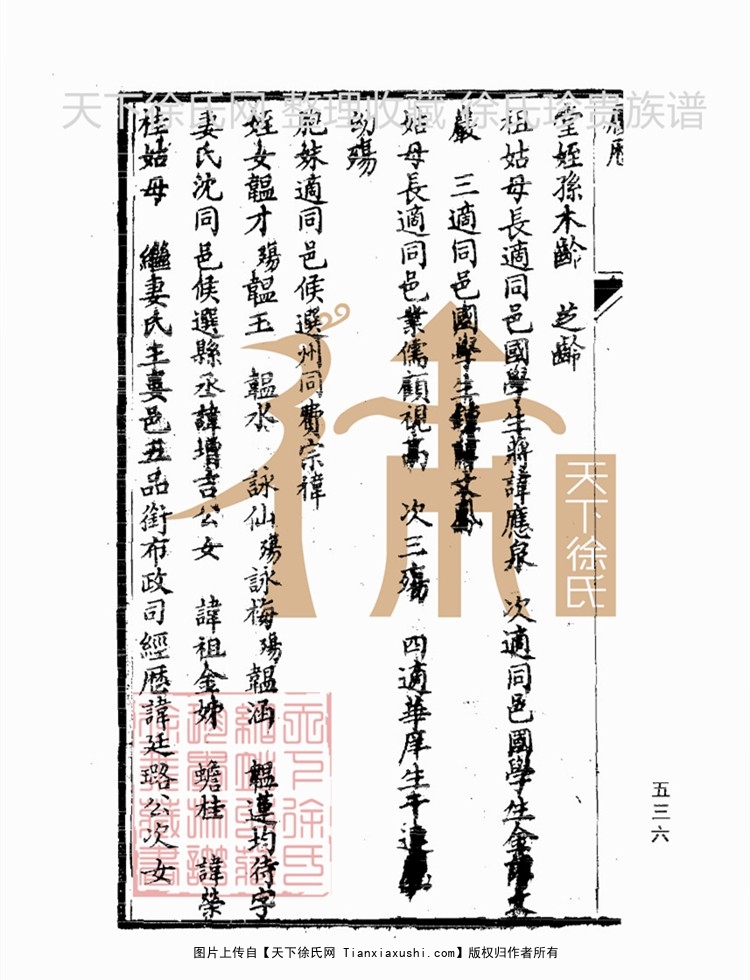 天下徐氏网 整理收藏 徐氏珍贵族谱
履歷
堂姪孫木齡 芝齡
祖姑母長適同邑國學生蔣諱應泉 次適同邑國學生金諱文
嚴 三適同邑國學生錢諱文鳳
姑母長適同邑業儒顧視高 次三殤 四適華庠生
幼殤
胞妹適同邑候選州同費宗褘
姪女韞才殤韞玉 韞水 詠仙殤詠梅殤韞涵 韞蓮均待字
妻氏沈同邑候選縣丞諱增吉公女 諱祖金姊 蟾桂 諱榮
桂姑母 繼妻氏王婁邑五品銜布政司經歷諱廷璐公次女
五三六
天下徐氏
图片上传自【天下徐氏网 Tianxiaxushi.com】版权归作者所有